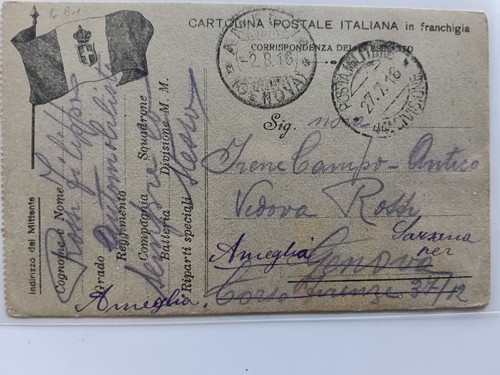 6 Bn
CARTOLINA POSTALE ITALIANA in franchigia
CORRISPONDENZA DEL R. ESERCITO
-2.8.16
(GENOVA)
POSTA MILITARE
27.7.16
44ª DIVISIONE
Sig.
Irene Campo-Antico
Vedova Rossi
Sarzana
per
Ameglia
Genova
Ameglia Corso Firenze 37/12
Indirizzo del Mittente
Cognome e Nome Rossi Filippo
Grado Automobilista
Reggimento
Compagnia Squadrone
Batteria Divisione M. M.
Riparti speciali